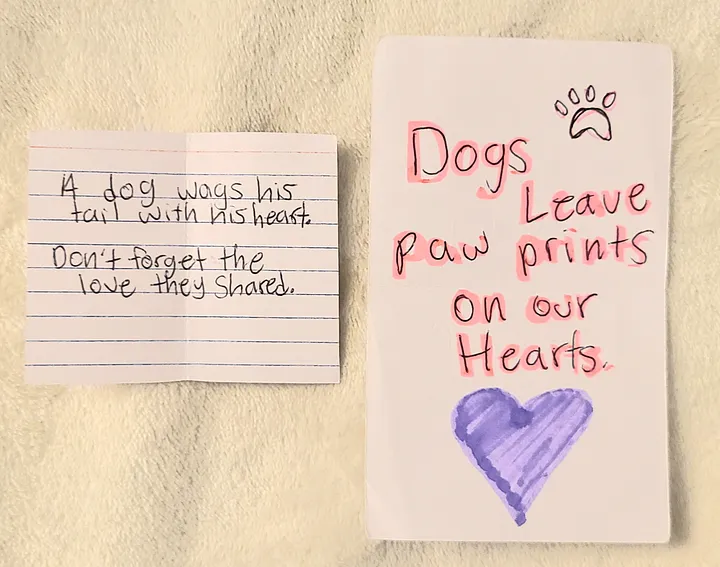 A dog wags his
tail with his heart.
Don't forget the
love they shared.
Dogs
Leave
paw prints
on our
Hearts.